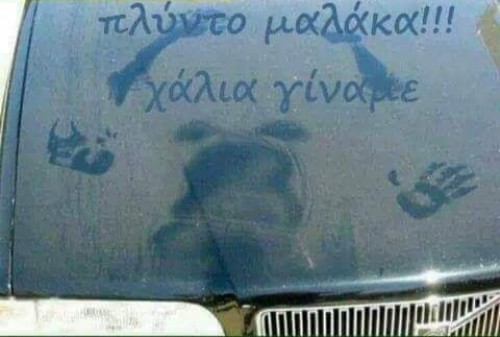 πλύντο μαλάκα!!!
χάλια γίναμε